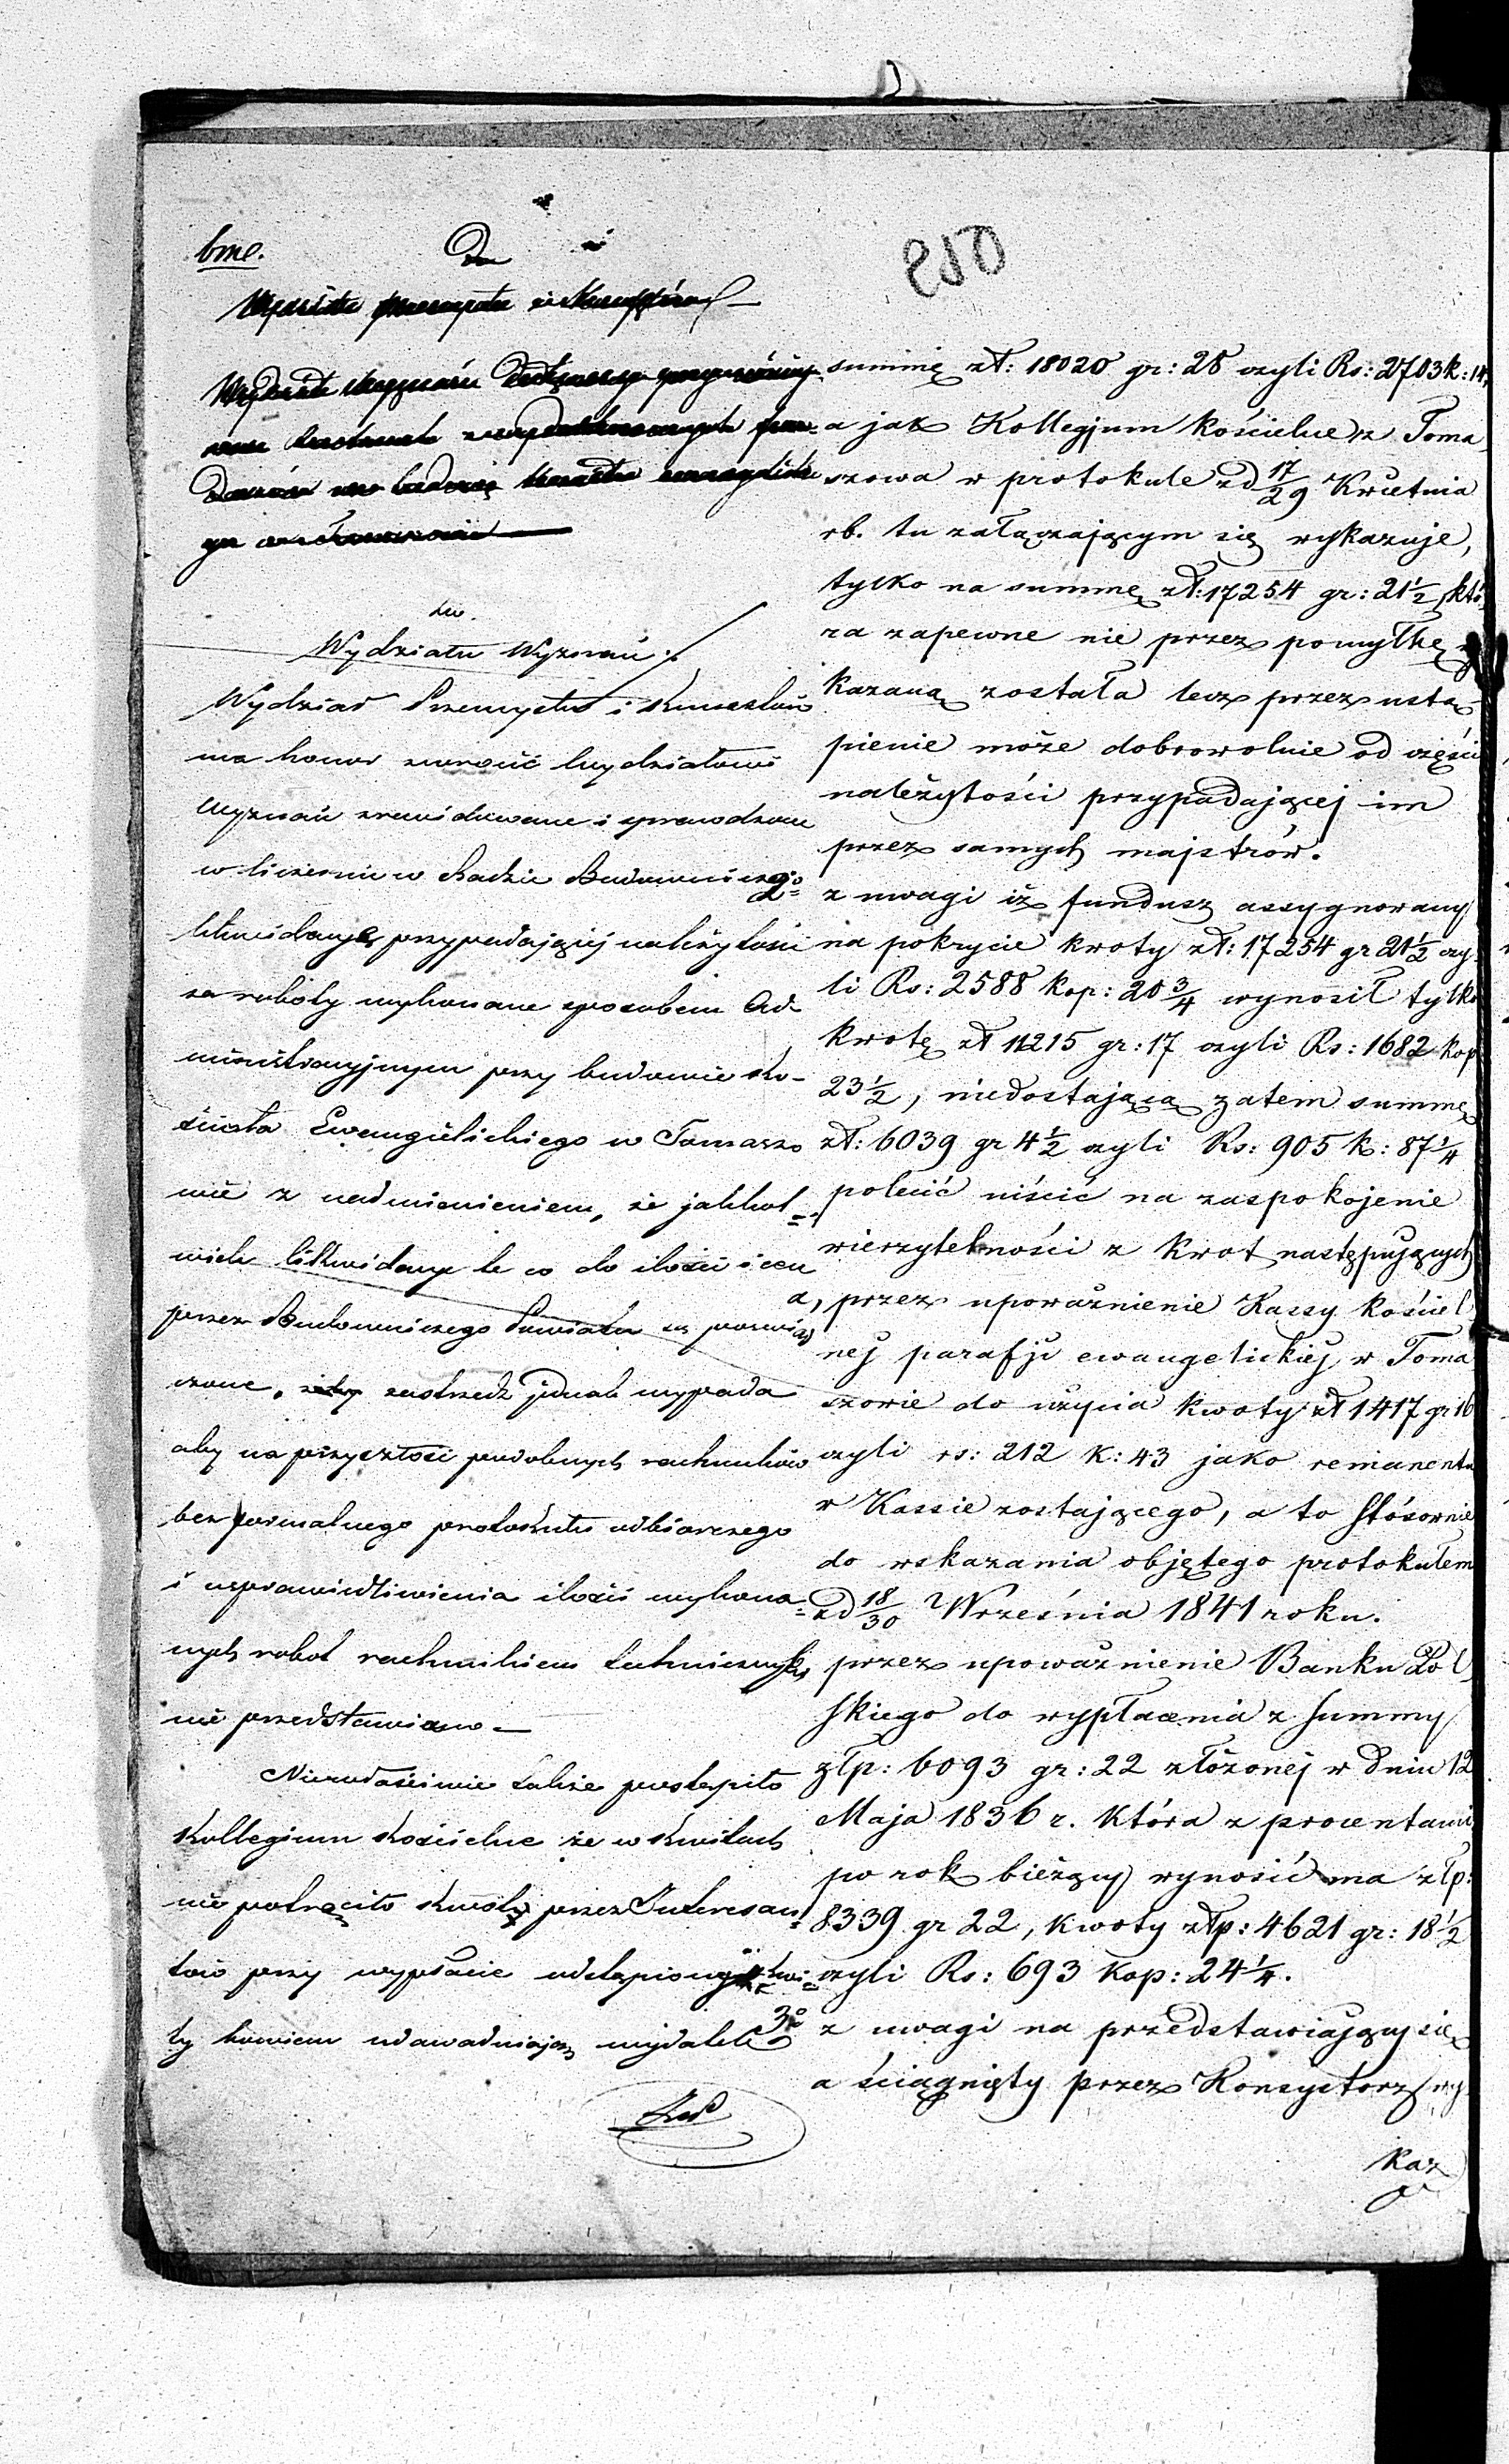 bme.
Do
250
do
Wydziału Wyznań
Wydział Przemysłu i Kunsztów
ma honor zwrócić Wydziałowi
Wyznań zrewidowane i sprawdzone
w liczeniu w Radzie Budowniczej
likwidacye przypadającej należytości
za roboty wykonane sposobem Ad-
ministracyjnym przy budowie ko-
ścioła Ewangielickiego w Tomaszo
wie z nadmienieniem, że jakkol=
wiek likwidacye te co do ilości i cen
przez Budowniczego Powiatu są poświad
czone, zastrzedz jednak wypada
aby na przyszłość podobnych rachunków
bez formalnego protokułu odbiorczego
i usprawiedliwienia ilości wykona=
nych robot rachunkiem technicznym
nie przedstawiano —
Niewłaściwie także postąpiło
Kollegium Kościelne że w kwitach
nie potrąciło kwoty przez Interesan=
tów przy wypłacie odstąpionych kwi=
ty bowiem udawadniają wydatek
summę zł: 18020 gr: 28 czyli Rs: 2703 k: 14,
a jak Kollegjum Kościelne z Toma
szowa w protokule z d 17/29 Kwietnia
rb. tu załączającym się wykazuje,
tylko na summę zł: 17254 gr: 21½, któ
ra zapewne nie przez pomyłkę wy
kazaną została lecz przez ustą-
pienie może dobrowolnie od części
należytości przypadającej im
przez samych majstrów.
2o z uwagi iż fundusz assygnowany
na pokrycie kwoty zł: 17254 gr 21½ czy
li Rs: 2588 kop: 20¾ wynosił tylko
kwotę zł 11215 gr: 17 czyli Rs: 1682 kop
23½, niedostającą zatem summę
zł: 6039 gr 4½ czyli Rs: 905 k: 87¼
polecić niścić na zaspokojenie
wierzytelności z kwot następujących
a, przez upoważnienie Kassy kościel
nej parafji ewangelickiej w Toma
szowie do użycia kwoty zł 1417 gr 16
czyli rs: 212 k: 43 jako remanentu
w Kassie zostającego, a to stósownie
do wskazania objętego protokułem
z d 18/30 Września 1841 roku.
przez upoważnienie Banku Pol
skiego do wypłacenia z summy
złp: 6093 gr: 22 złożonej w dniu 12
Maja 1836 r. która z procentami
po rok bieżący wynosić ma złp:
8339 gr 22, kwoty złp: 4621 gr: 18½
czyli Rs: 693 kop: 24¼.
3o z uwagi na przedstawiający się
a ściągnięty przez Konsystorz wy
kaz